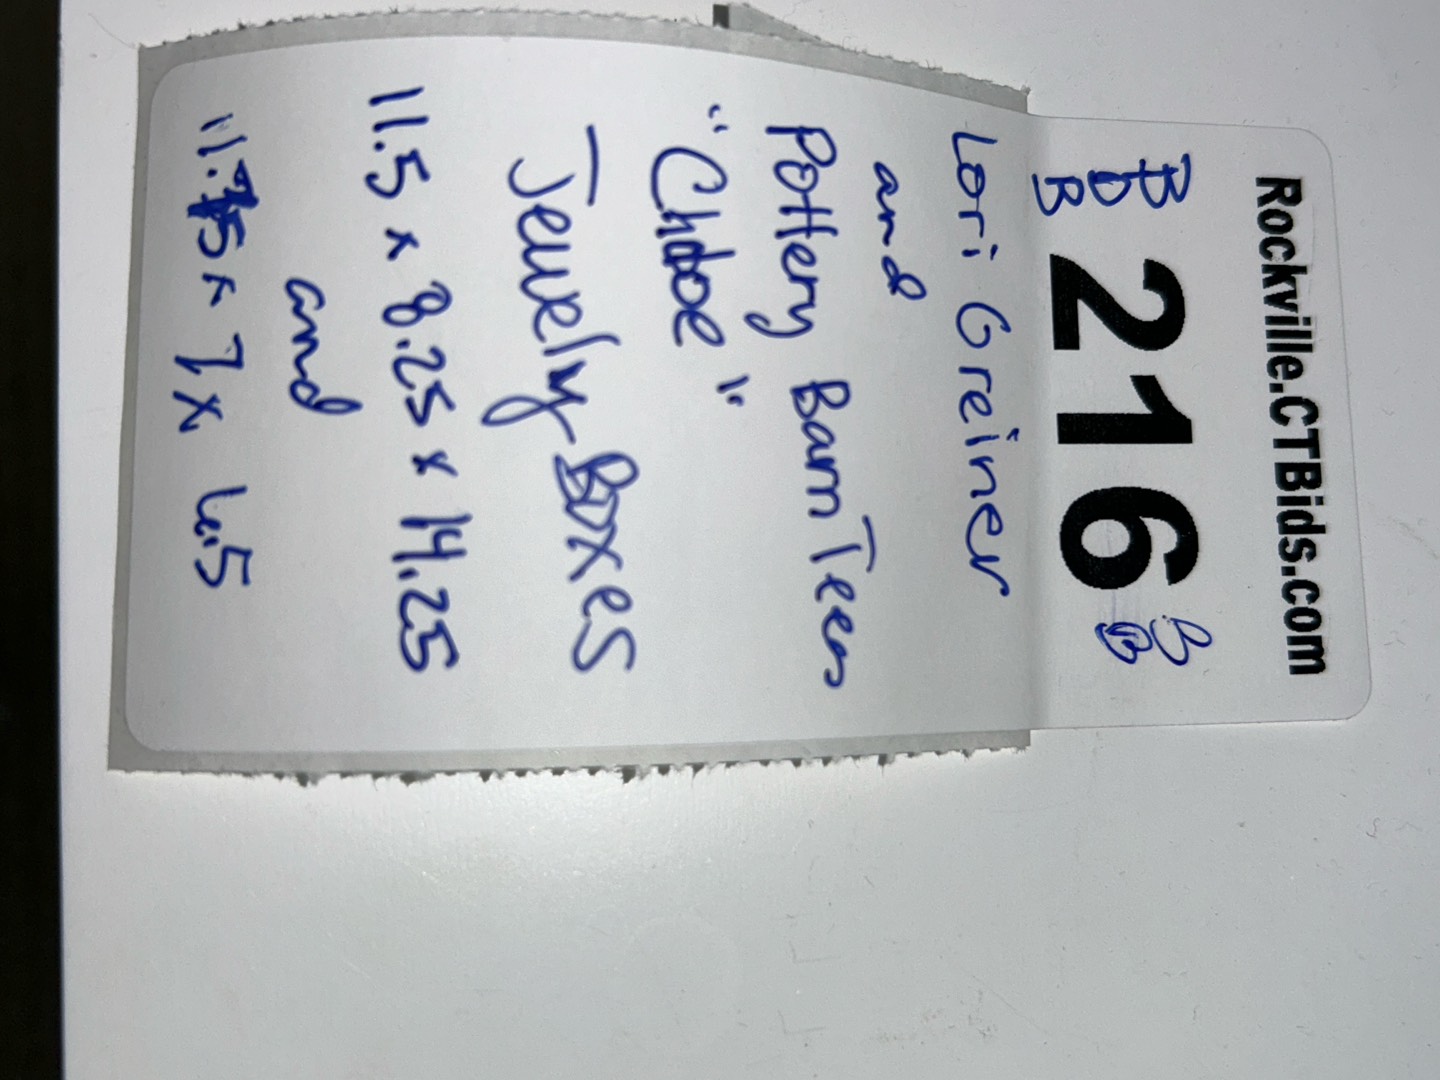 Rockville.CTBids.com
216
Lori Greiner
and
Pottery Barn Teen
"Chloe"
Jewelry Boxes
11.5 x 8.25 x 14.25
and
11.75 x 7 x 6.5